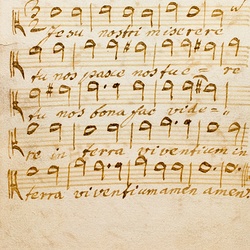 Jesu nostri miserere
tu nos pasce nos tuē = re
tu nos bona fac vide =
re in terra viventium in
terra viventium amen amen